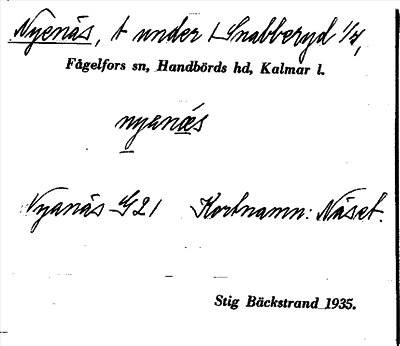 Nyenäs, t under Snabberyd 1/4,
Fågelfors sn, Handbörds hd, Kalmar l.
nyanäs
Nyanäs G21 Kortnamn: Näset.
Stig Bäckstrand 1935.